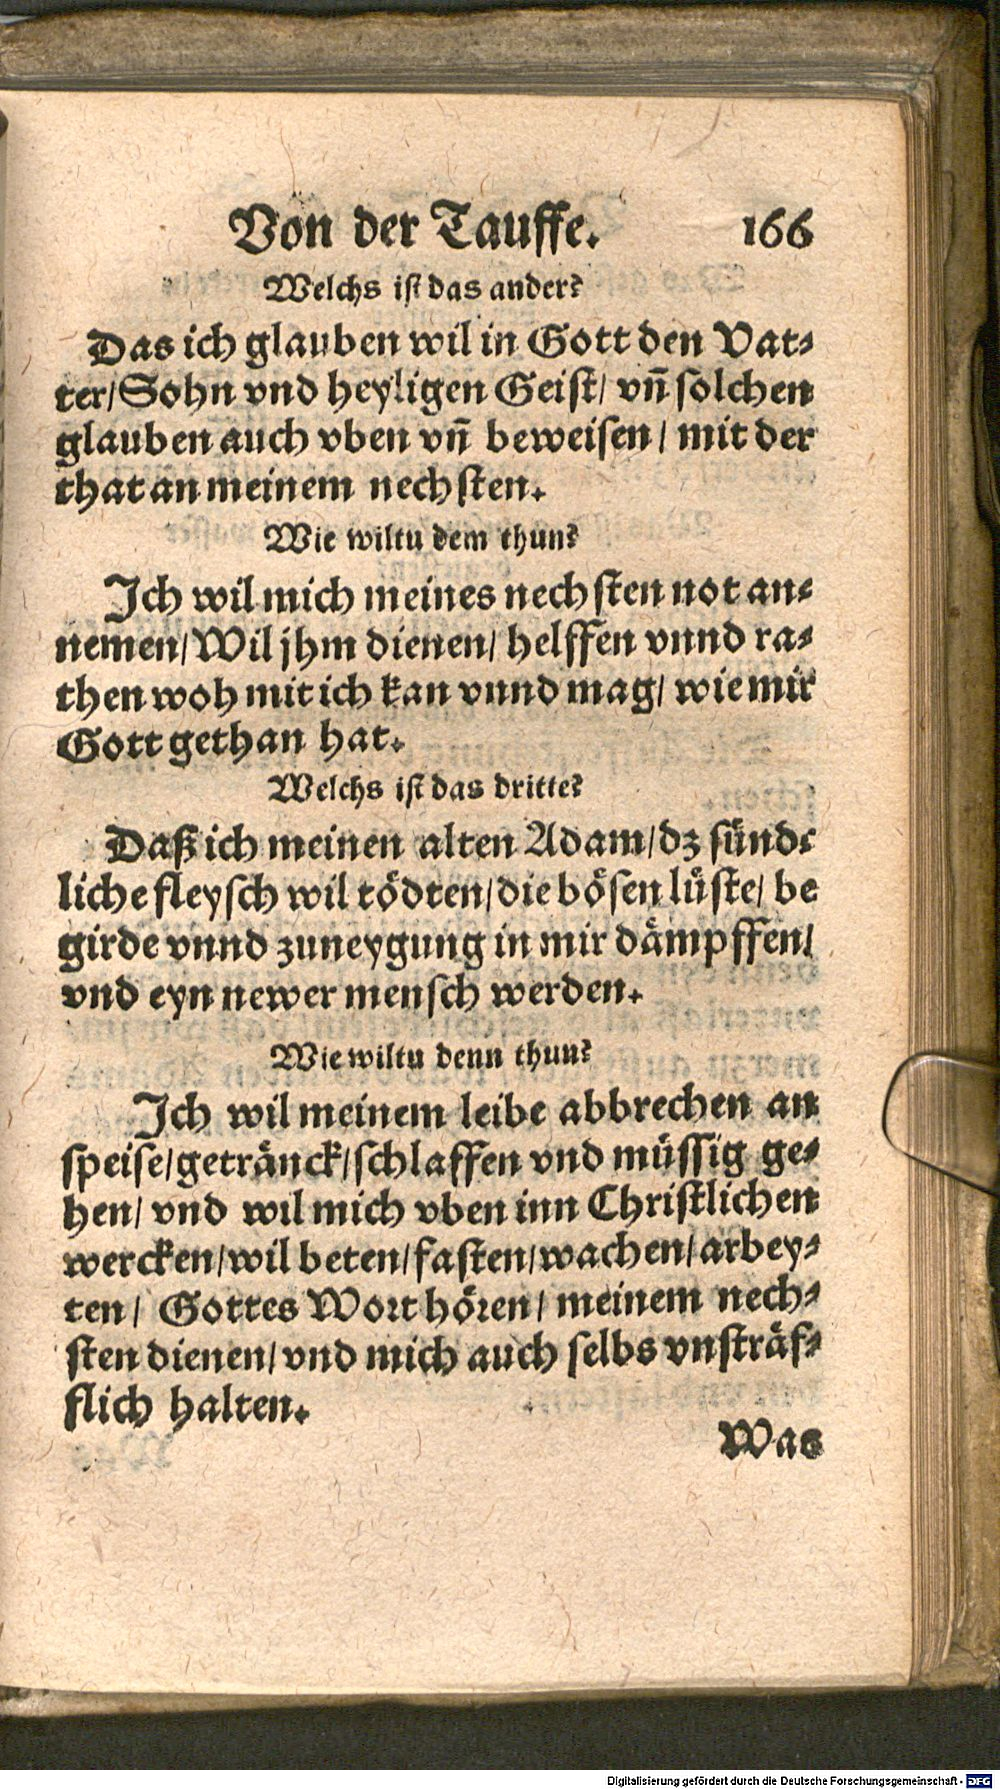 Von der Tauffe. 166
Welchs ist das ander?
Das ich glauben wil in Gott den Vat⸗
ter/ Sohn vnd heyligen Geist/ vñ solchen
glauben auch vben vñ beweisen/ mit der
that an meinem nechsten.
Wie wiltu dem thun?
Ich wil mich meines nechsten not an⸗
nemen/ Wil jhm dienen/ helffen vnnd ra⸗
then woh mit ich kan vnnd mag/ wie mir
Gott gethan hat.
Welchs ist das dritte?
Daß ich meinen alten Adam/ dz sünd⸗
liche fleysch wil tödten/ die bösen lüste/ be
girde vnnd zuneygung in mir dämpffen/
vnd eyn newer mensch werden.
Wie wiltu denn thun?
Ich wil meinem leibe abbrechen an
speise/ getränck/ schlaffen vnd müssig ge⸗
hen/ vnd wil mich vben inn Christlichen
wercken/ wil beten/ fasten/ wachen/ arbey⸗
ten/ Gottes Wort hören/ meinem nech⸗
sten dienen/ vnd mich auch selbs vnsträf⸗
flich halten.
Was
Digitalisierung gefördert durch die Deutsche Forschungsgemeinschaft - DFG